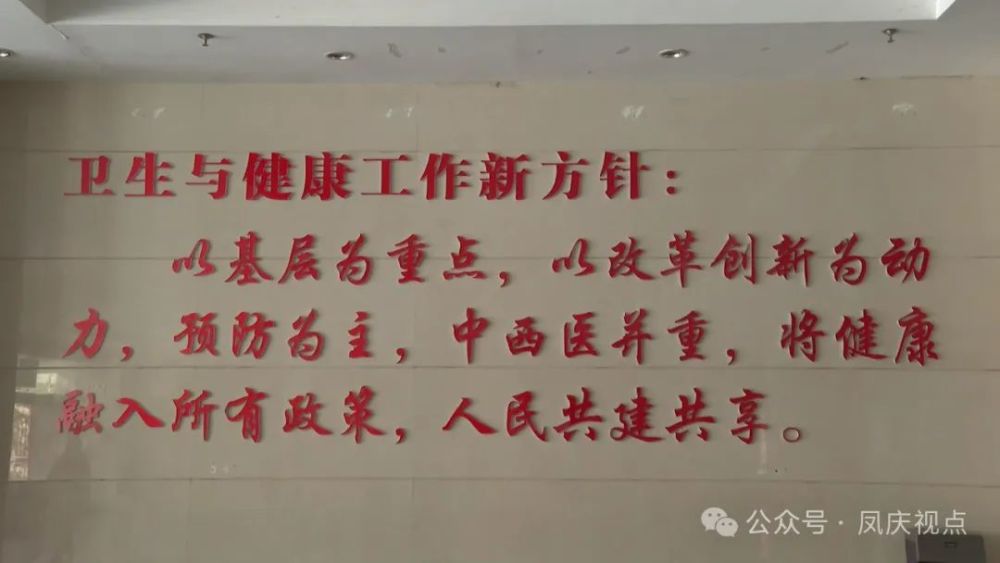 卫生与健康工作新方针：
以基层为重点，以改革创新为动
力，预防为主，中西医并重，将健康
融入所有政策，人民共建共享。
公众号·凤庆视点